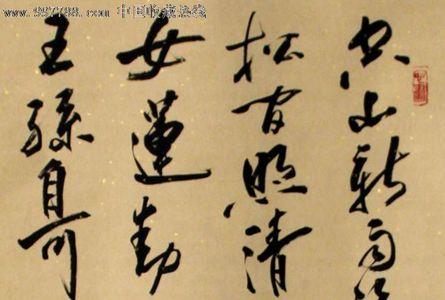 www.997788.com 中国收藏热线
空山新雨
松間照清
女蓮動
王孫自可